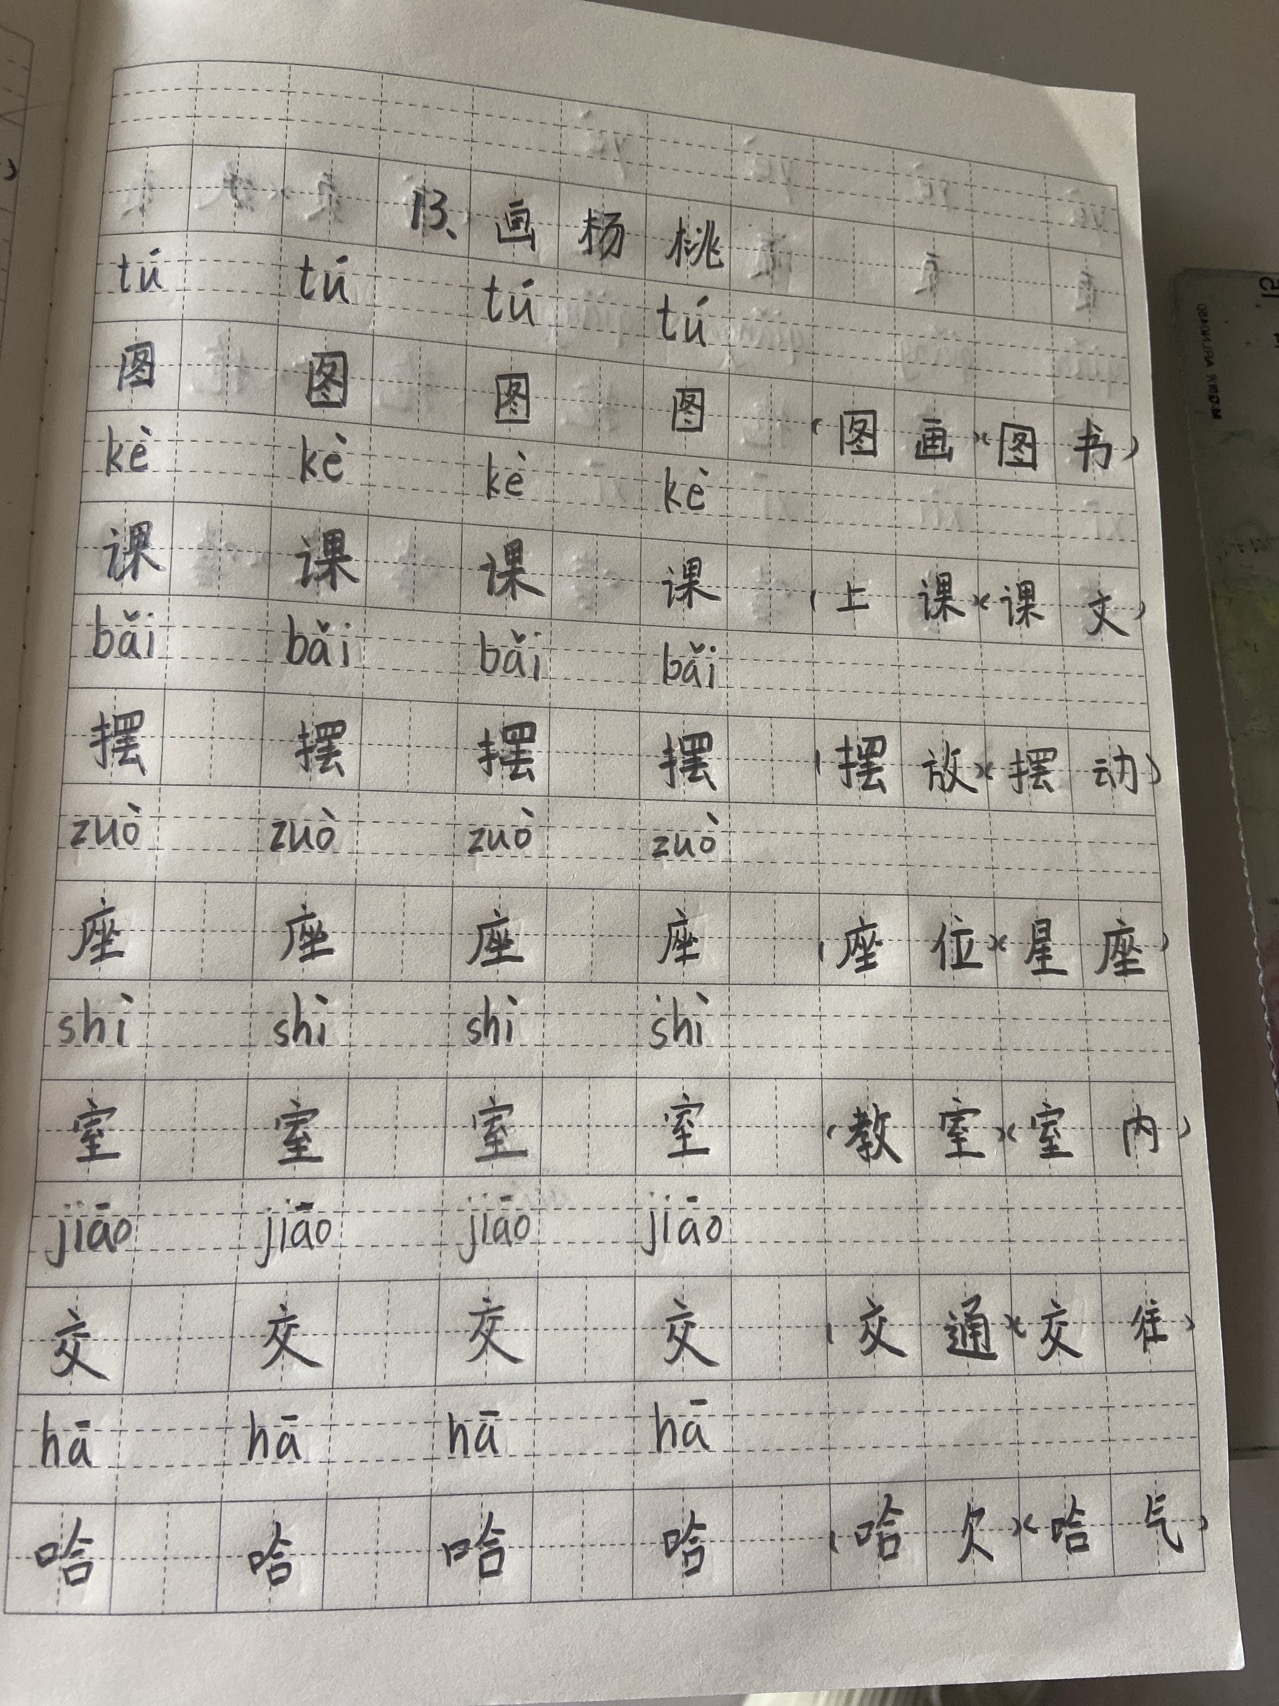 13、画杨桃
tú tú tú tú
图 图 图 图 (图画)(图书)
kè kè kè kè
课 课 课 课 (上课)(课文)
bǎi bǎi bǎi bǎi
摆 摆 摆 摆 (摆放)(摆动)
zuò zuò zuò zuò
座 座 座 座 (座位)(星座)
shì shì shì shì
室 室 室 室 (教室)(室内)
jiāo jiāo jiāo jiāo
交 交 交 交 (交通)(交往)
hā hā hā hā
哈 哈 哈 哈 (哈欠)(哈气)